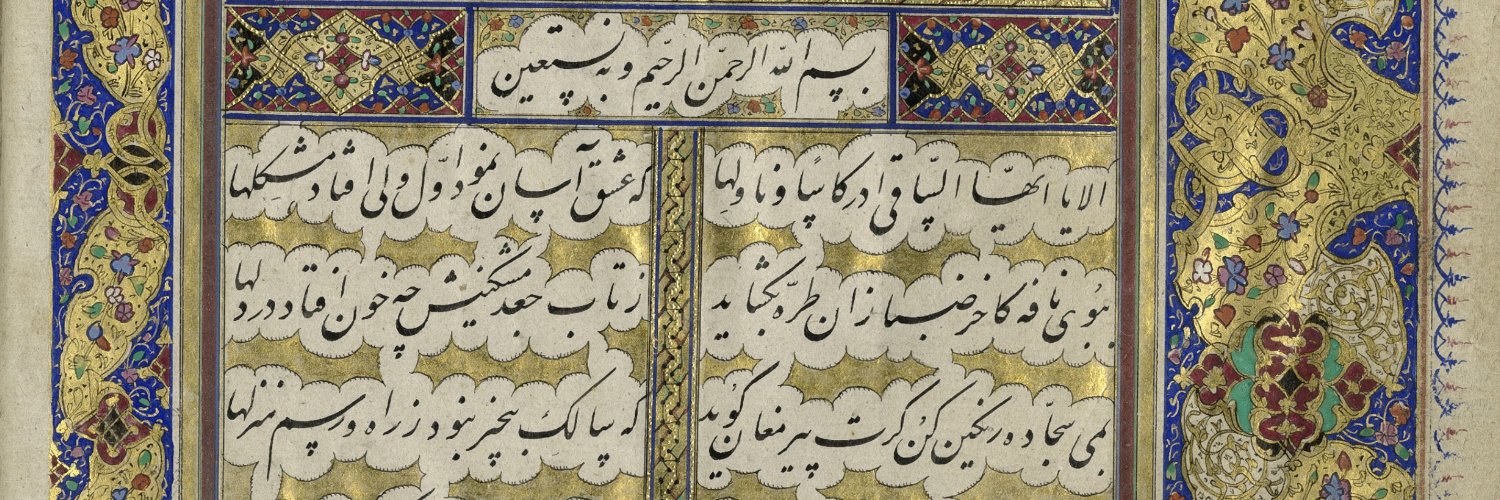 بسم الله الرحمن الرحیم و به نستعین
الا یا ایها الساقی ادر کاسا و ناولها که عشق آسان نمود اول ولی افتاد مشکلها
ببوی نافه کاخر صبا زان طره بگشاید ز تاب جعد مشکینش چه خون افتاد در دلها
بمی سجاده رنگین کن گرت پیر مغان گوید که سالک بیخبر نبود ز راه و رسم منزلها